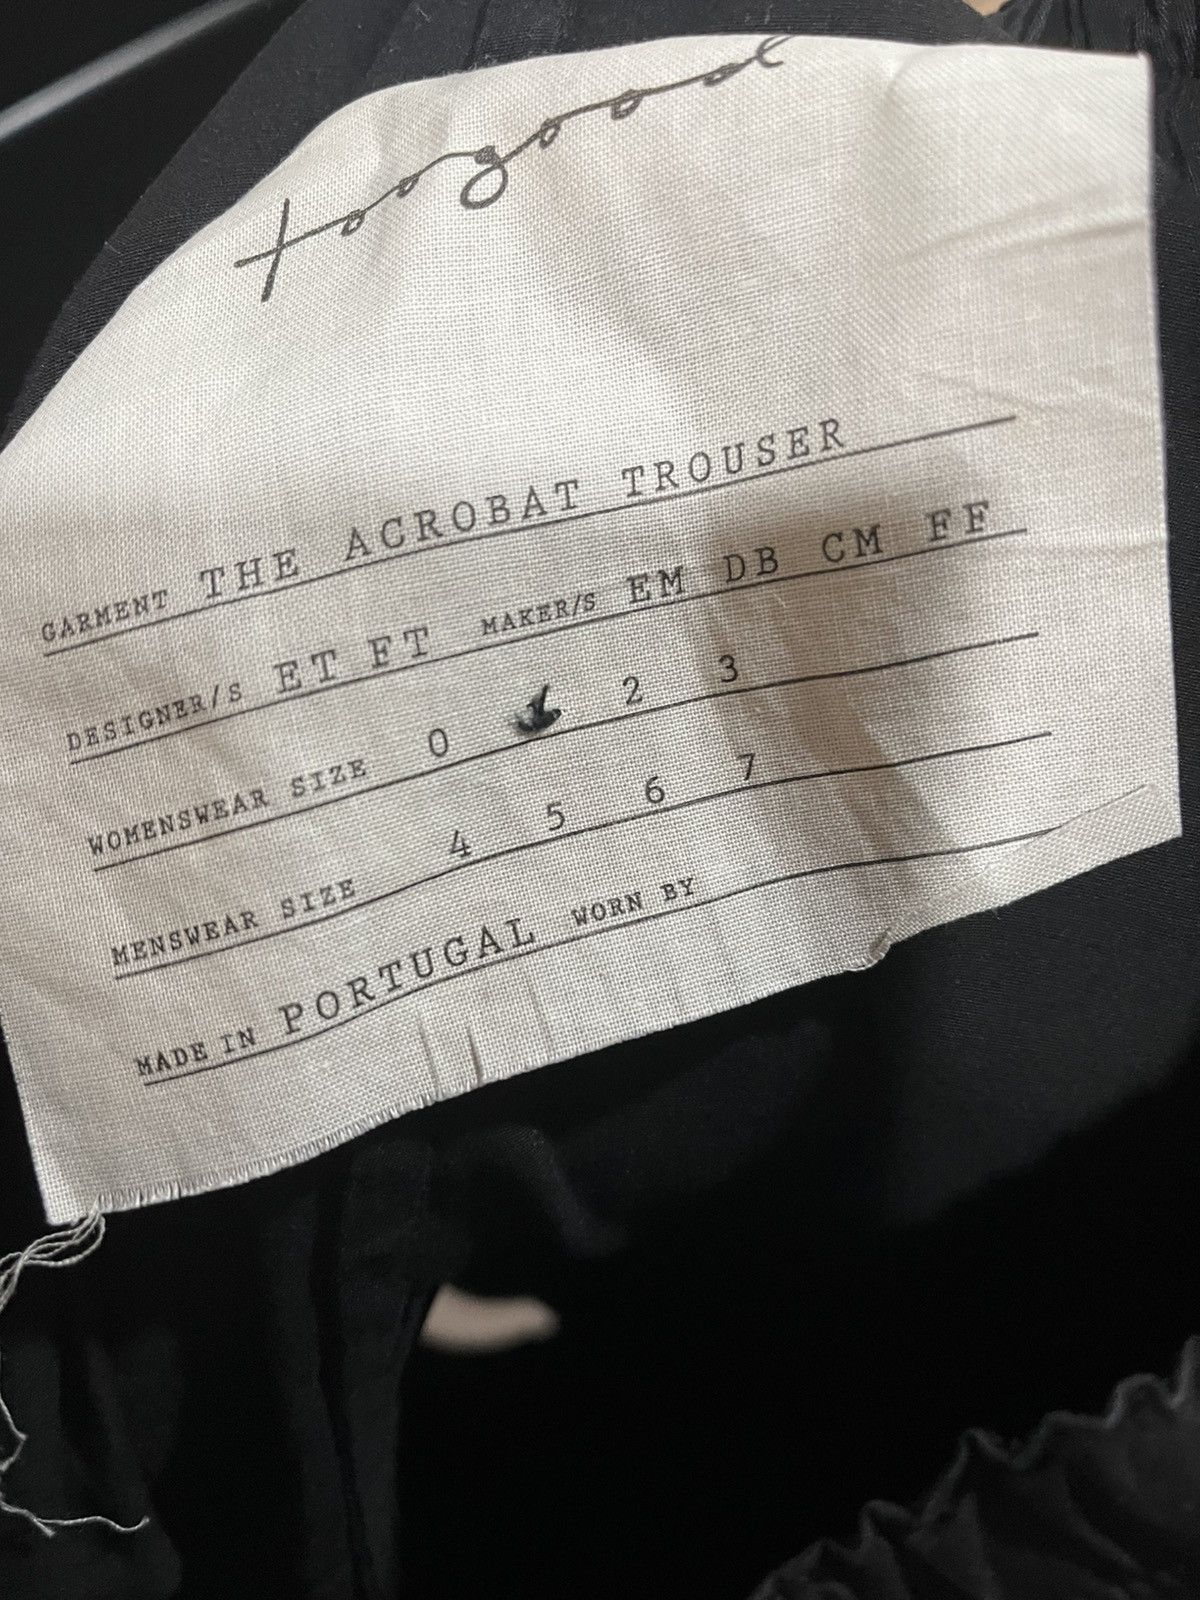 toogood
GARMENT THE ACROBAT TROUSER
DESIGNER/S ET FT MAKER/S EM DB CM FF
WOMENSWEAR SIZE 0 2 3
MENSWEAR SIZE 4 5 6 7
MADE IN PORTUGAL WORN BY